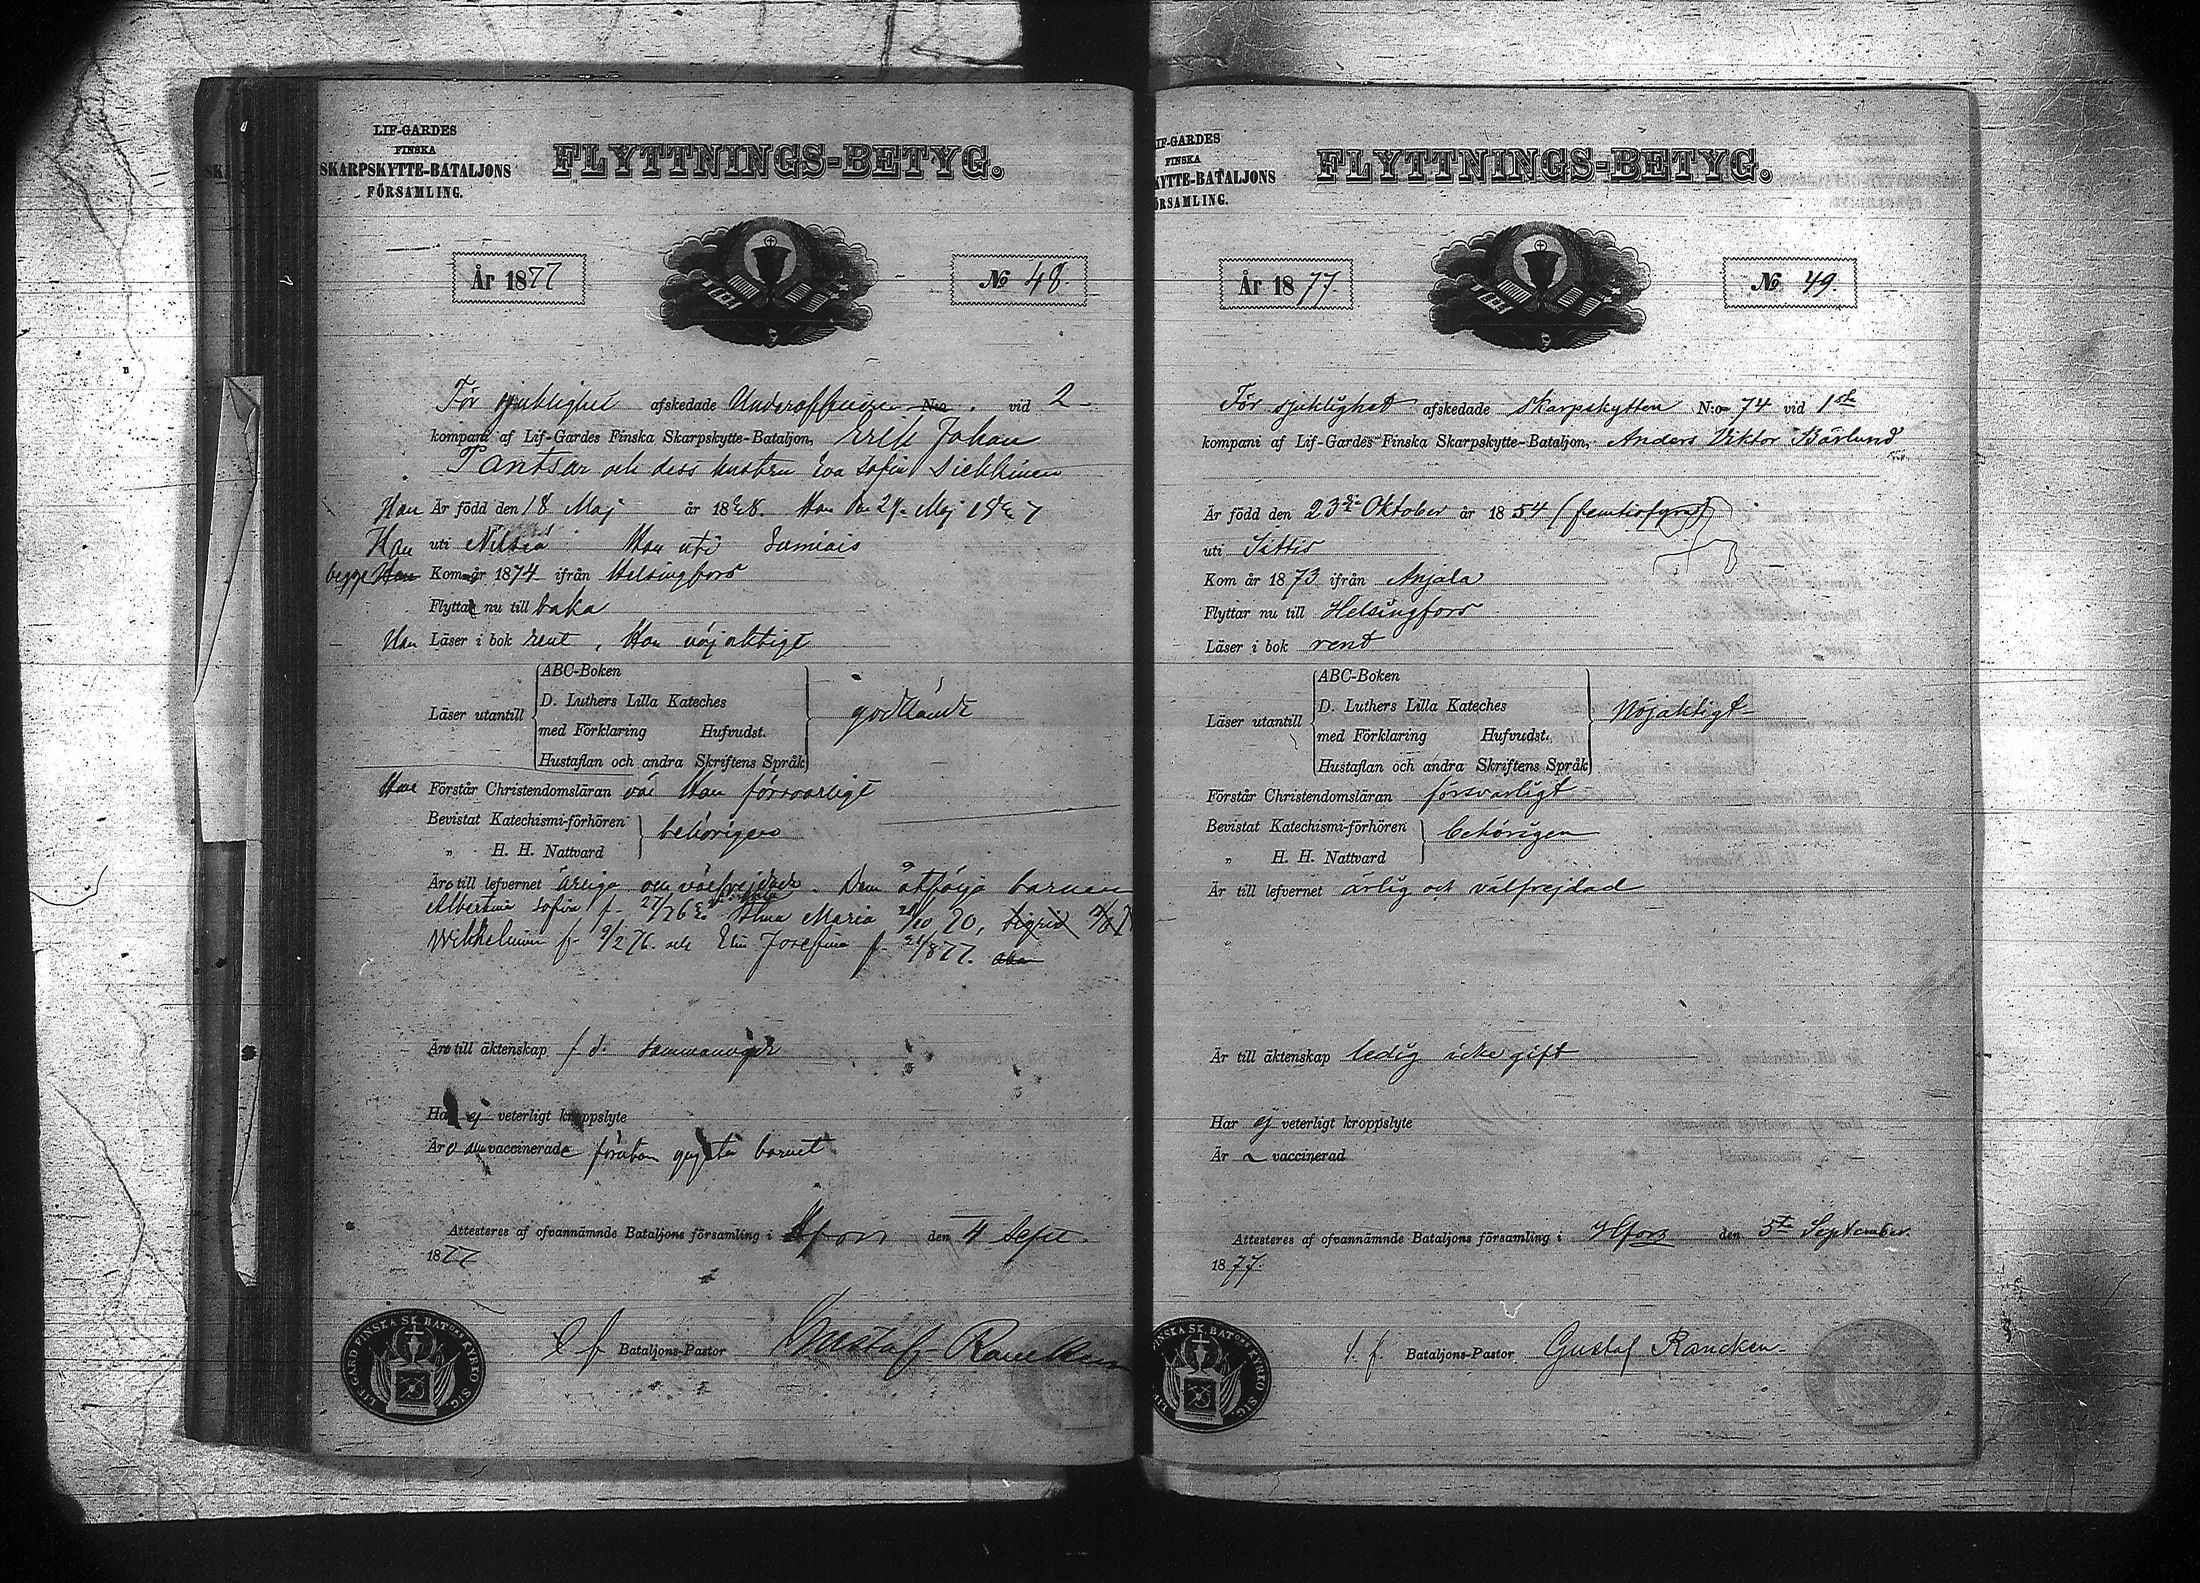 LIF-GARDES
FINSKA
SKARPSKYTTE-BATALJONS
FÖRSAMLING.
FLYTTNINGS-BETYG.
År 1877
No 48.
För sjuklighet afskedade Underofficeren N:o vid 2
kompani af Lif-Gardes Finska Skarpskytte-Bataljon, Erik Johan
Tantsar och dess hustru Eva Sofia
Han Är född den 18 Maj år 18 Hon den Maj
Han uti Nilsiä Hon uti Sumiais
begge Kom år 1874 ifrån Helsingfors
Flytta nu till baka
Han Läser i bok rent, Hon nöjaktigt
Läser utantill
ABC-Boken
D. Luthers Lilla Kateches
med Förklaring Hufvudst.
Hustaflan och andra Skriftens Språk
godkändt
Han Förstår Christendomsläran väl Hon försvarligt
Bevistat Katechismi-förhören
„ H. H. Nattvard
behörigen
Äro till lefvernet ärliga och välfrejdade. Dem åtfölja barnen
Albertina Sofia f. Alma Maria
Wilhelmina f. 9/2 76. och Elin Josefina f. 24/8 77.
Äro till äktenskap f. d. sammanvigde
Ha ej veterligt kroppslyte
Äro vaccinerade förutom yngsta barnet
Attesteres af ofvannämnde Bataljons församling i Hfors den 4 Sept.
1877
Bataljons-Pastor Gustaf Rancken
LIF GARD. FINSKA SK. BAT:ns KYRKO SIG.
IF-GARDES
FINSKA
KYTTE-BATALJONS
ÖRSAMLING.
FLYTTNINGS-BETYG.
År 1877.
No 49.
För sjuklighet afskedade Skarpskytten N:o 74 vid 1sta
kompani af Lif-Gardes Finska Skarpskytte-Bataljon, Anders Viktor Bärlund
Är född den 23de Oktober år 1854 (femtiofyra)
uti Sittis
Kom år 1873 ifrån Anjala
Flyttar nu till Helsingfors
Läser i bok rent
Läser utantill
ABC-Boken
D. Luthers Lilla Kateches
med Förklaring Hufvudst.
Hustaflan och andra Skriftens Språk
Nöjaktigt
Förstår Christendomsläran försvarligt
Bevistat Katechismi-förhören
„ H. H. Nattvard
behörigen
Är till lefvernet ärlig och välfrejdad
Är till äktenskap ledig icke gift
Har ej veterligt kroppslyte
Är vaccinerad
Attesteres af ofvannämnde Bataljons församling i Hfors den 5te September.
1877.
t. f. Bataljons-Pastor Gustaf Rancken
FINSKA SK. BAT:ns KYRKO SIG.